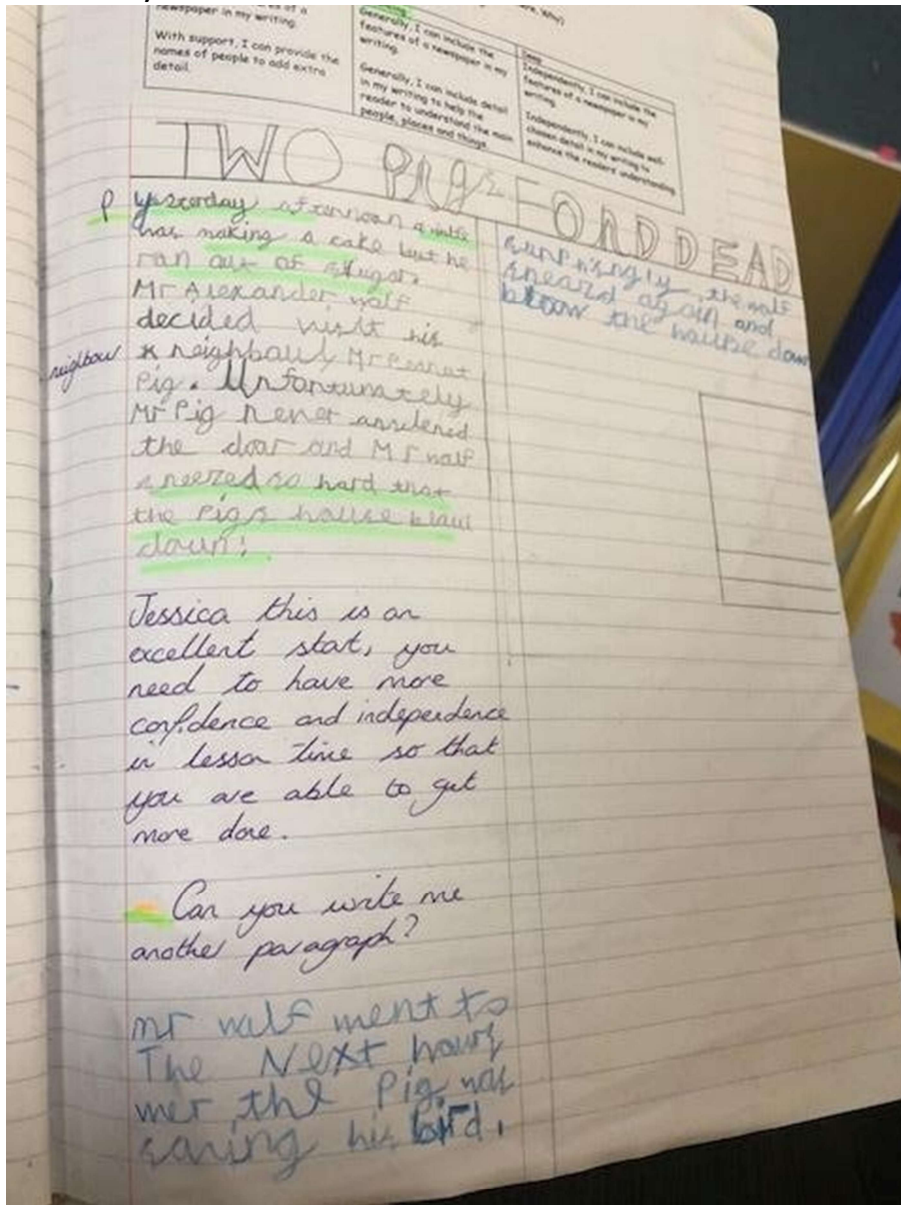 newspaper in my writing.
With support, I can provide the
names of people to add extra
detail.
Generally, I can include the
features of a newspaper in my
writing.
Generally, I can include detail
in my writing to help the
reader to understand the main
people, places and things.
Deep
Independently, I can include the
features of a newspaper in my
writing.
Independently, I can include well-
chosen detail in my writing to
enhance the readers' understanding
TWO PIgs FOND DEAD
P
yesterday afternoon a wolf
was making a cake but he
ran out of shugar.
Mr Alexander wolf
decided visit his
neighbour
x neighbour Mr Peanut
Pig. Unfortunately
Mr Pig never answered
the door and Mr wolf
sneezed so hard that
the Pigs house blew
down!
Jessica this is an
excellent start, you
need to have more
confidence and independence
in lesson time so that
you are able to get
more done.
Can you write me
another paragraph?
mr wolf went to
The Next
the Pig was
his bird.
surprisingly, the wolf
sneard again and
blow the house down